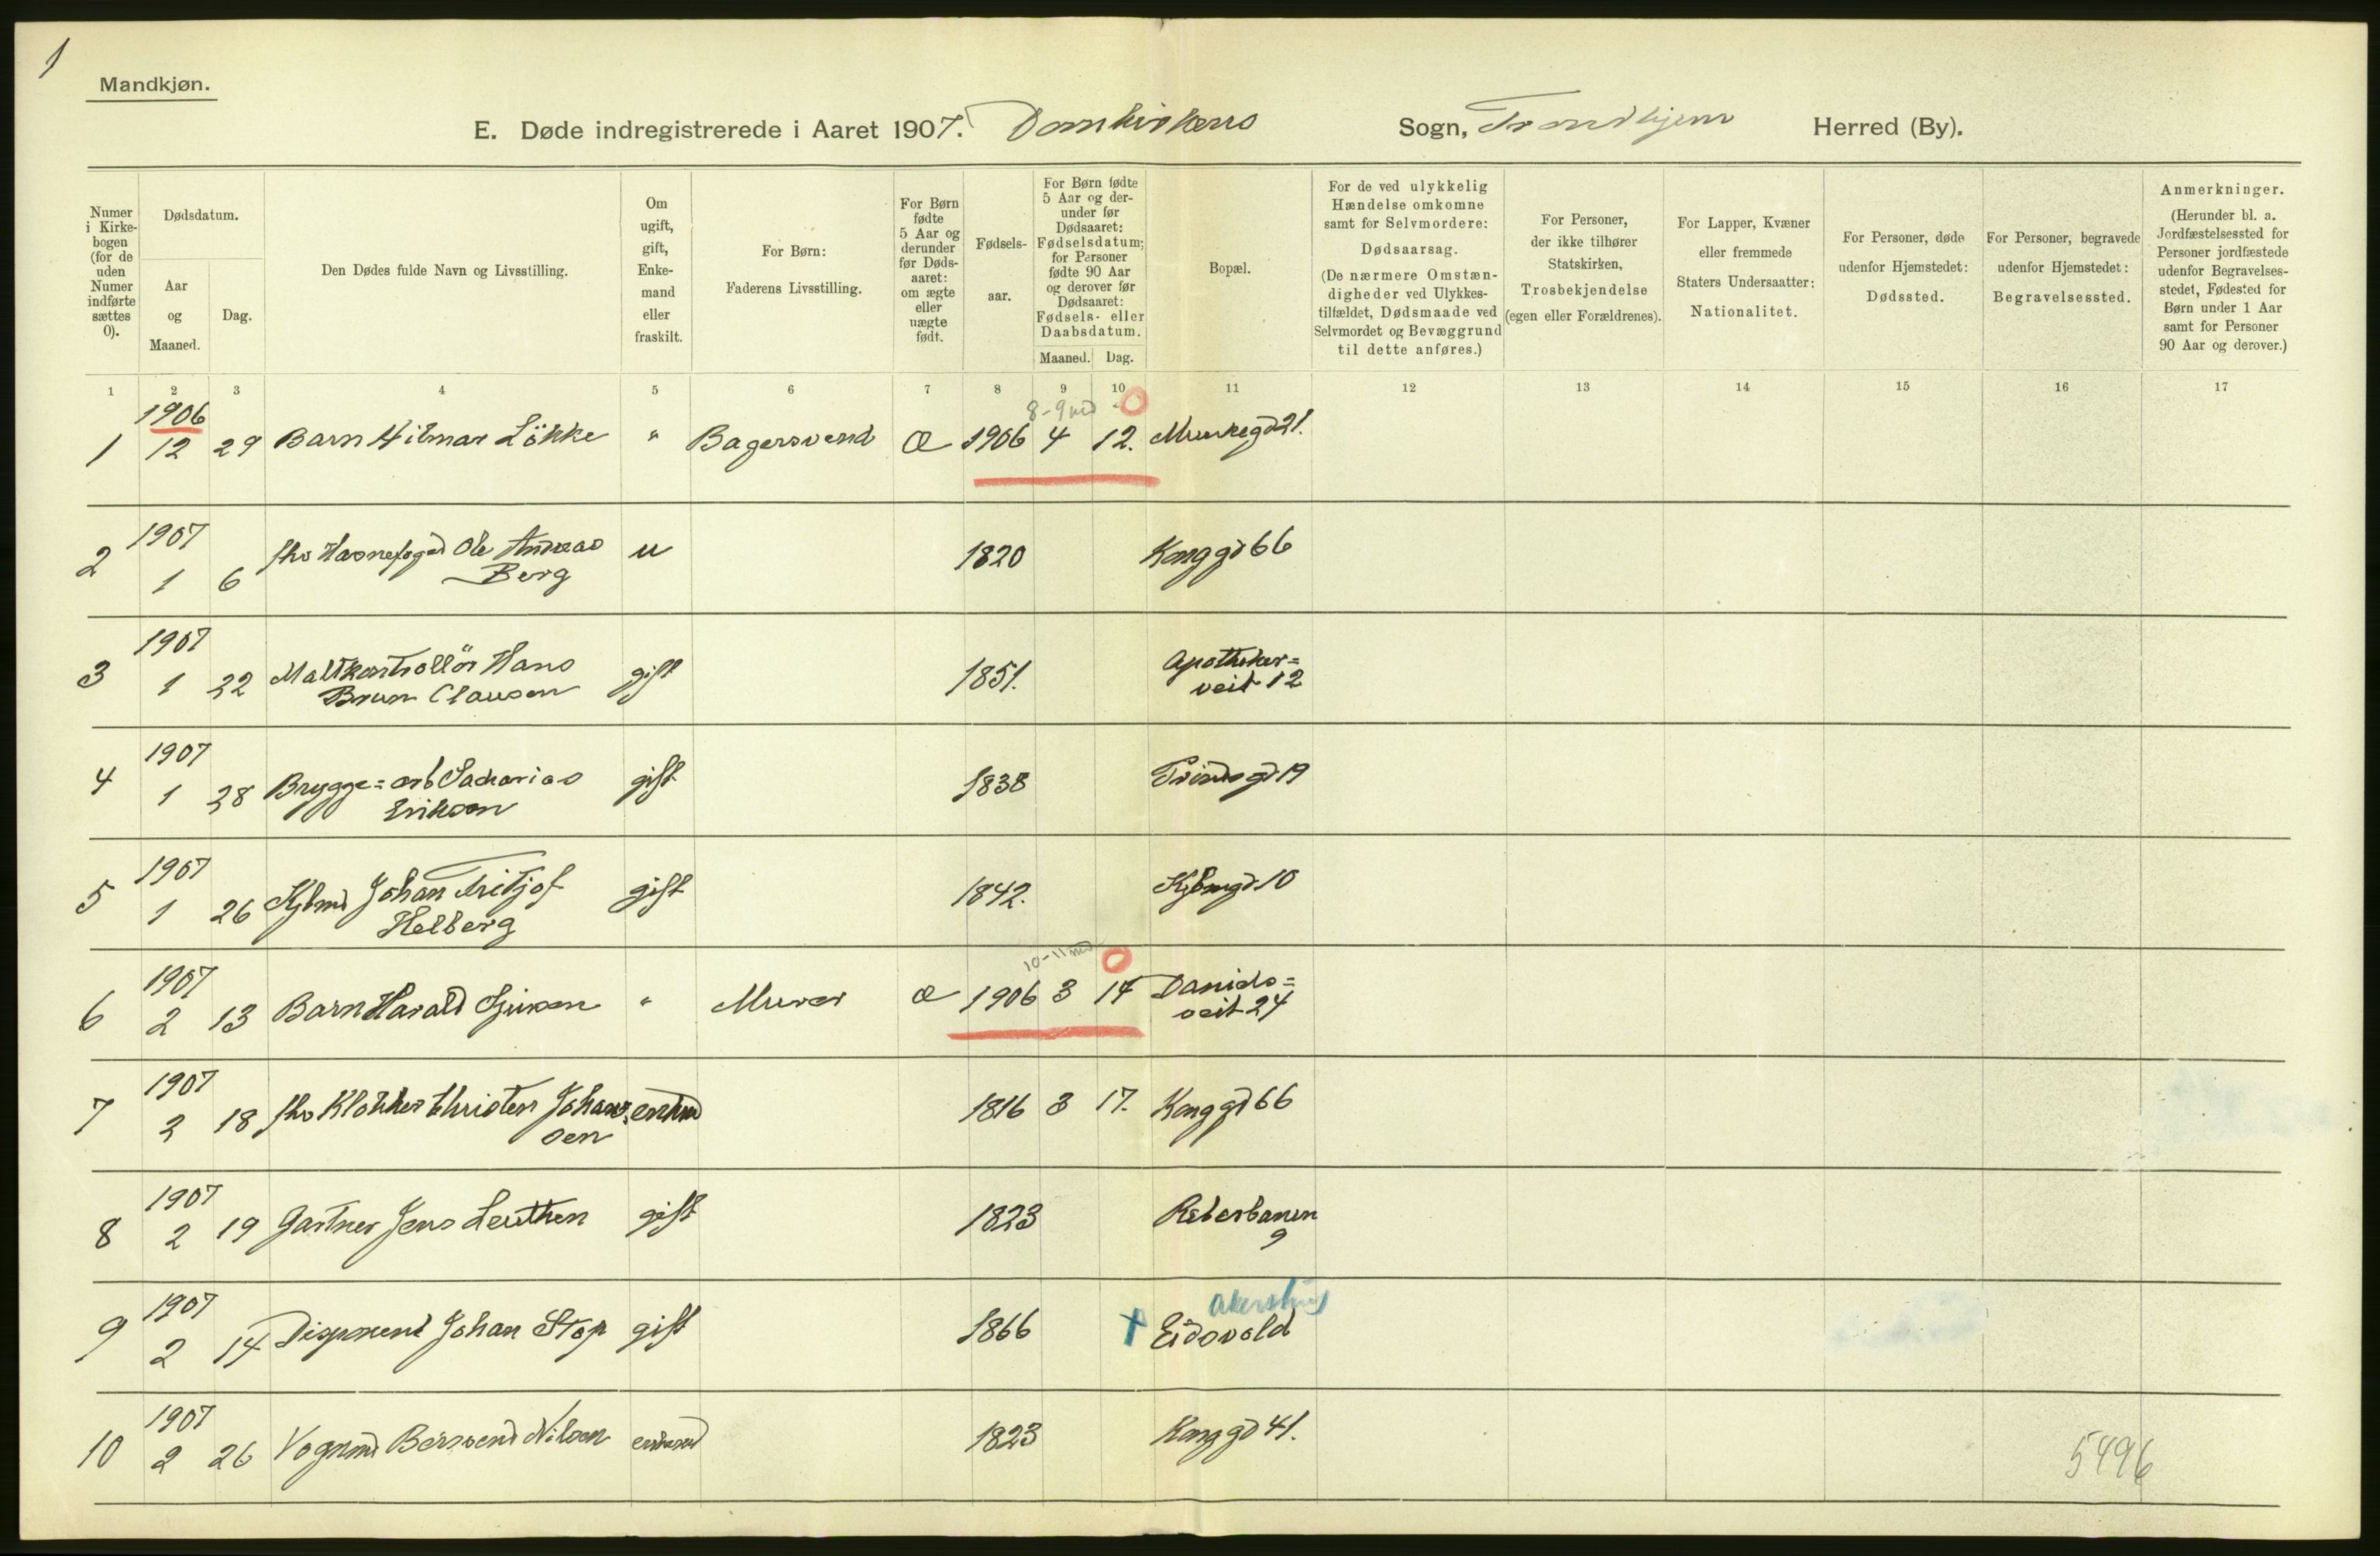 1
Mandkjøn.
E. Døde indregistrerede i Aaret 1907. Domkirkens Sogn, Trondhjem Herred (By).
Numer i Kirke-bogen (for de uden Numer indførte sættes 0).
Dødsdatum.
Aar og Maaned.
Dag.
Den Dødes fulde Navn og Livsstilling.
Om ugift, gift, Enke-mand eller fraskilt.
For Børn:
Faderens Livsstilling.
For Børn fødte 5 Aar og derunder før Døds-aaret: om ægte eller uægte født.
Fødsels-aar.
For Børn fødte 5 Aar og der-under før Dødsaaret: Fødselsdatum; for Personer fødte 90 Aar og derover før Dødsaaret: Fødsels- eller Daabsdatum.
Maaned. Dag.
Bopæl.
For de ved ulykkelig Hændelse omkomne samt for Selvmordere:
Dødsaarsag.
(De nærmere Omstæn-digheder ved Ulykkes-tilfældet, Dødsmaade ved Selvmordet og Bevæggrund til dette anføres.)
For Personer, der ikke tilhører Statskirken,
Trosbekjendelse
(egen eller Forældrenes).
For Lapper, Kvæner eller fremmede Staters Undersaatter:
Nationalitet.
For Personer, døde udenfor Hjemstedet:
Dødssted.
For Personer, begravede udenfor Hjemstedet:
Begravelsessted.
Anmerkninger.
(Herunder bl. a. Jordfæstelsessted for Personer jordfæstede udenfor Begravelses-stedet, Fødested for Børn under 1 Aar samt for Personer 90 Aar og derover.)
1 2 3 4 5 6 7 8 9 10 11 12 13 14 15 16 17
1906 8-9 md 0
1 12 29 Barn Hilmar Lökke " Bagersvend Æ 1906 4 12. Munkegd 21.
1907
2 1 6 fhv Havnefoged Ole Andreas u 1820 Konggd 66
Berg
1907
3 1 22 Maltkontrollör Hans gift 1851. Apotheker=
Brun Clausen veit 12
1907
4 1 28 Brygge=arb Sacharias gift 1838 Prinds gd 19
Eriksen
1907
5 1 26 Kjbmd Johan Fritjof gift 1842. Kjbmgd 10
Helberg
1907 10-11 md 0
6 2 13 Barn Harald " Murer Æ 1906 3 14 Daniels=
veit 24
1907
7 2 18 fhv Klokker Christen Johan= enkmd 1816 3 17. Kong gd 66
sen
1907
8 2 19 Gartner Jens Leuthen gift 1823 Reberbanen
9
1907 Akershus
9 2 14 Disponent Johan Stop gift 1866 † Eidsvold
1907
10 2 26 Vognmd Berswend Nilsen enkemd 1823 Kong gd 41.
5496